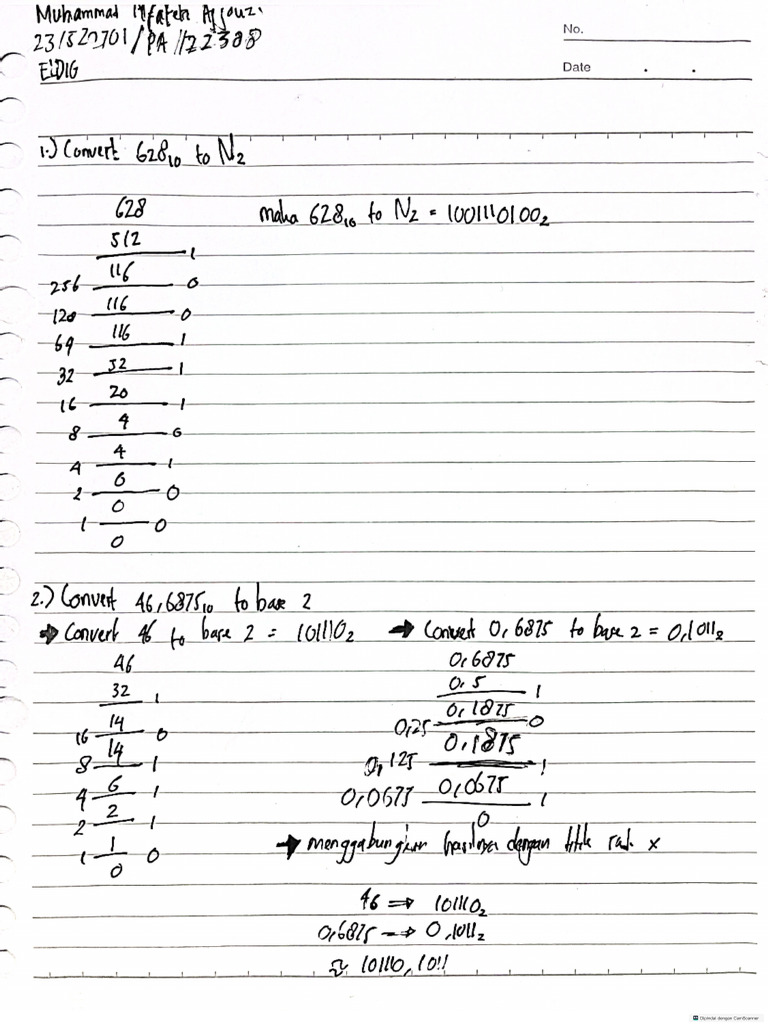 Muhammad
No.
EIDIG
Date . .
1.) Convert 628₁₀ to N₂
628
maka 628₁₀ to N₂ = 1001110100₂
512
1
116
256 0
116
120 0
116
64 1
52
32 1
20
16 1
4
8 0
4
4 1
0
2 0
0
1 0
0
2.) Convert 46,6875₁₀ to base 2
→ Convert 46 to base 2 = 101110₂
46
32
1
14
16 0
14
8 1
6
4 1
2
2 1
1
1 0
0
→ Convert 0,6875 to base 2 = 0,1011₂
0,6875
0,5
1
0,1875
0,25 0
0,1875
0,125 1
0,0675
0,0675 1
0
→ menggabungkan hasilnya dengan titik
46 ⇒ 101110₂
0,6875 → 0,1011₂
≈ 10110,1011
Dipindai dengan CamScanner